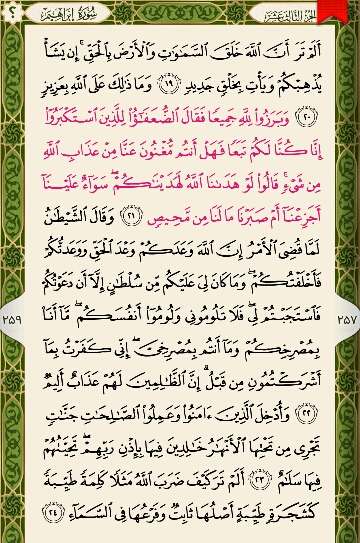 سُورَةُ إِبْرَاهِيمَ الجُزءُ الثَّالِثَ عَشَرَ
أَلَمْ تَرَ أَنَّ ٱللَّهَ خَلَقَ ٱلسَّمَٰوَٰتِ وَٱلْأَرْضَ بِٱلْحَقِّ ۚ إِن يَشَأْ
يُذْهِبْكُمْ وَيَأْتِ بِخَلْقٍ جَدِيدٍ ﴿١٩﴾ وَمَا ذَٰلِكَ عَلَى ٱللَّهِ بِعَزِيزٍ
﴿٢٠﴾ وَبَرَزُوا۟ لِلَّهِ جَمِيعًا فَقَالَ ٱلضُّعَفَٰٓؤُا۟ لِلَّذِينَ ٱسْتَكْبَرُوٓا۟
إِنَّا كُنَّا لَكُمْ تَبَعًا فَهَلْ أَنتُم مُّغْنُونَ عَنَّا مِنْ عَذَابِ ٱللَّهِ
مِن شَىْءٍ ۚ قَالُوا۟ لَوْ هَدَىٰنَا ٱللَّهُ لَهَدَيْنَٰكُمْ ۖ سَوَآءٌ عَلَيْنَآ
أَجَزِعْنَآ أَمْ صَبَرْنَا مَا لَنَا مِن مَّحِيصٍ ﴿٢١﴾ وَقَالَ ٱلشَّيْطَٰنُ
لَمَّا قُضِىَ ٱلْأَمْرُ إِنَّ ٱللَّهَ وَعَدَكُمْ وَعْدَ ٱلْحَقِّ وَوَعَدتُّكُمْ
فَأَخْلَفْتُكُمْ ۖ وَمَا كَانَ لِىَ عَلَيْكُم مِّن سُلْطَٰنٍ إِلَّآ أَن دَعَوْتُكُمْ
فَٱسْتَجَبْتُمْ لِى ۖ فَلَا تَلُومُونِى وَلُومُوٓا۟ أَنفُسَكُم ۖ مَّآ أَنَا۠
بِمُصْرِخِكُمْ وَمَآ أَنتُم بِمُصْرِخِىَّ ۖ إِنِّى كَفَرْتُ بِمَآ
أَشْرَكْتُمُونِ مِن قَبْلُ ۗ إِنَّ ٱلظَّٰلِمِينَ لَهُمْ عَذَابٌ أَلِيمٌ
﴿٢٢﴾ وَأُدْخِلَ ٱلَّذِينَ ءَامَنُوا۟ وَعَمِلُوا۟ ٱلصَّٰلِحَٰتِ جَنَّٰتٍ
تَجْرِى مِن تَحْتِهَا ٱلْأَنْهَٰرُ خَٰلِدِينَ فِيهَا بِإِذْنِ رَبِّهِمْ ۖ تَحِيَّتُهُمْ
فِيهَا سَلَٰمٌ ﴿٢٣﴾ أَلَمْ تَرَ كَيْفَ ضَرَبَ ٱللَّهُ مَثَلًا كَلِمَةً طَيِّبَةً
كَشَجَرَةٍ طَيِّبَةٍ أَصْلُهَا ثَابِتٌ وَفَرْعُهَا فِى ٱلسَّمَآءِ ﴿٢٤﴾
٢٥٧
٢٥٩
؟